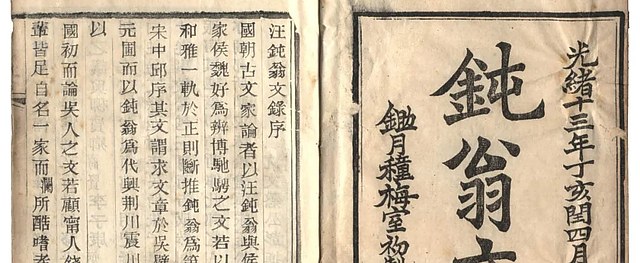 光緒十三年丁亥閏四月
鈍翁文
鋤月種梅室初
汪鈍翁文錄序
國朝古文家論者以汪鈍翁與侯
家侯魏好爲辨博馳騁之文若以
和雅一軌於正則斷推鈍翁爲第
宋中邱序其文謂求文章於吳
元圃而以鈍翁爲代興荆川震川
以
國初而論吳人之文若顧甯人錢
輩皆足自名一家而瀾所酷嗜者